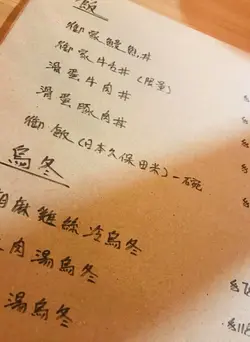 飯
御家鰻魚丼
御家牛舌丼(限量)
滑蛋牛肉丼
滑蛋豚肉丼
御飯(日本久保田米)一碗
烏冬
胡麻雞絲冷烏冬
肉湯烏冬
湯烏冬